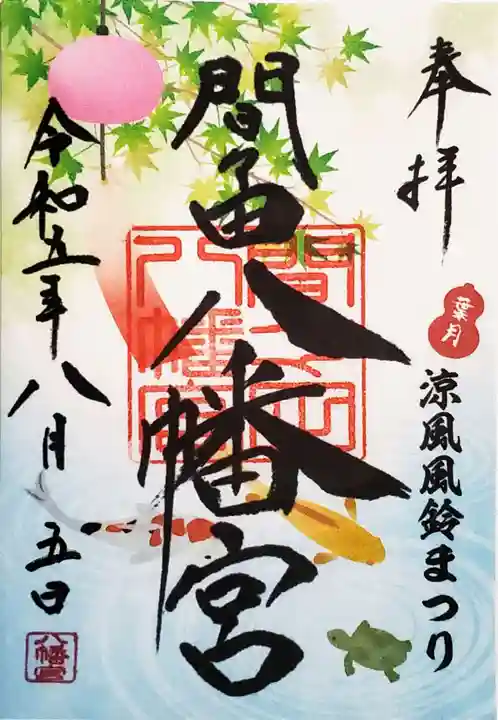 奉拝
葉月
涼風風鈴まつり
間々田八幡宮
令和五年八月五日
八幡宮